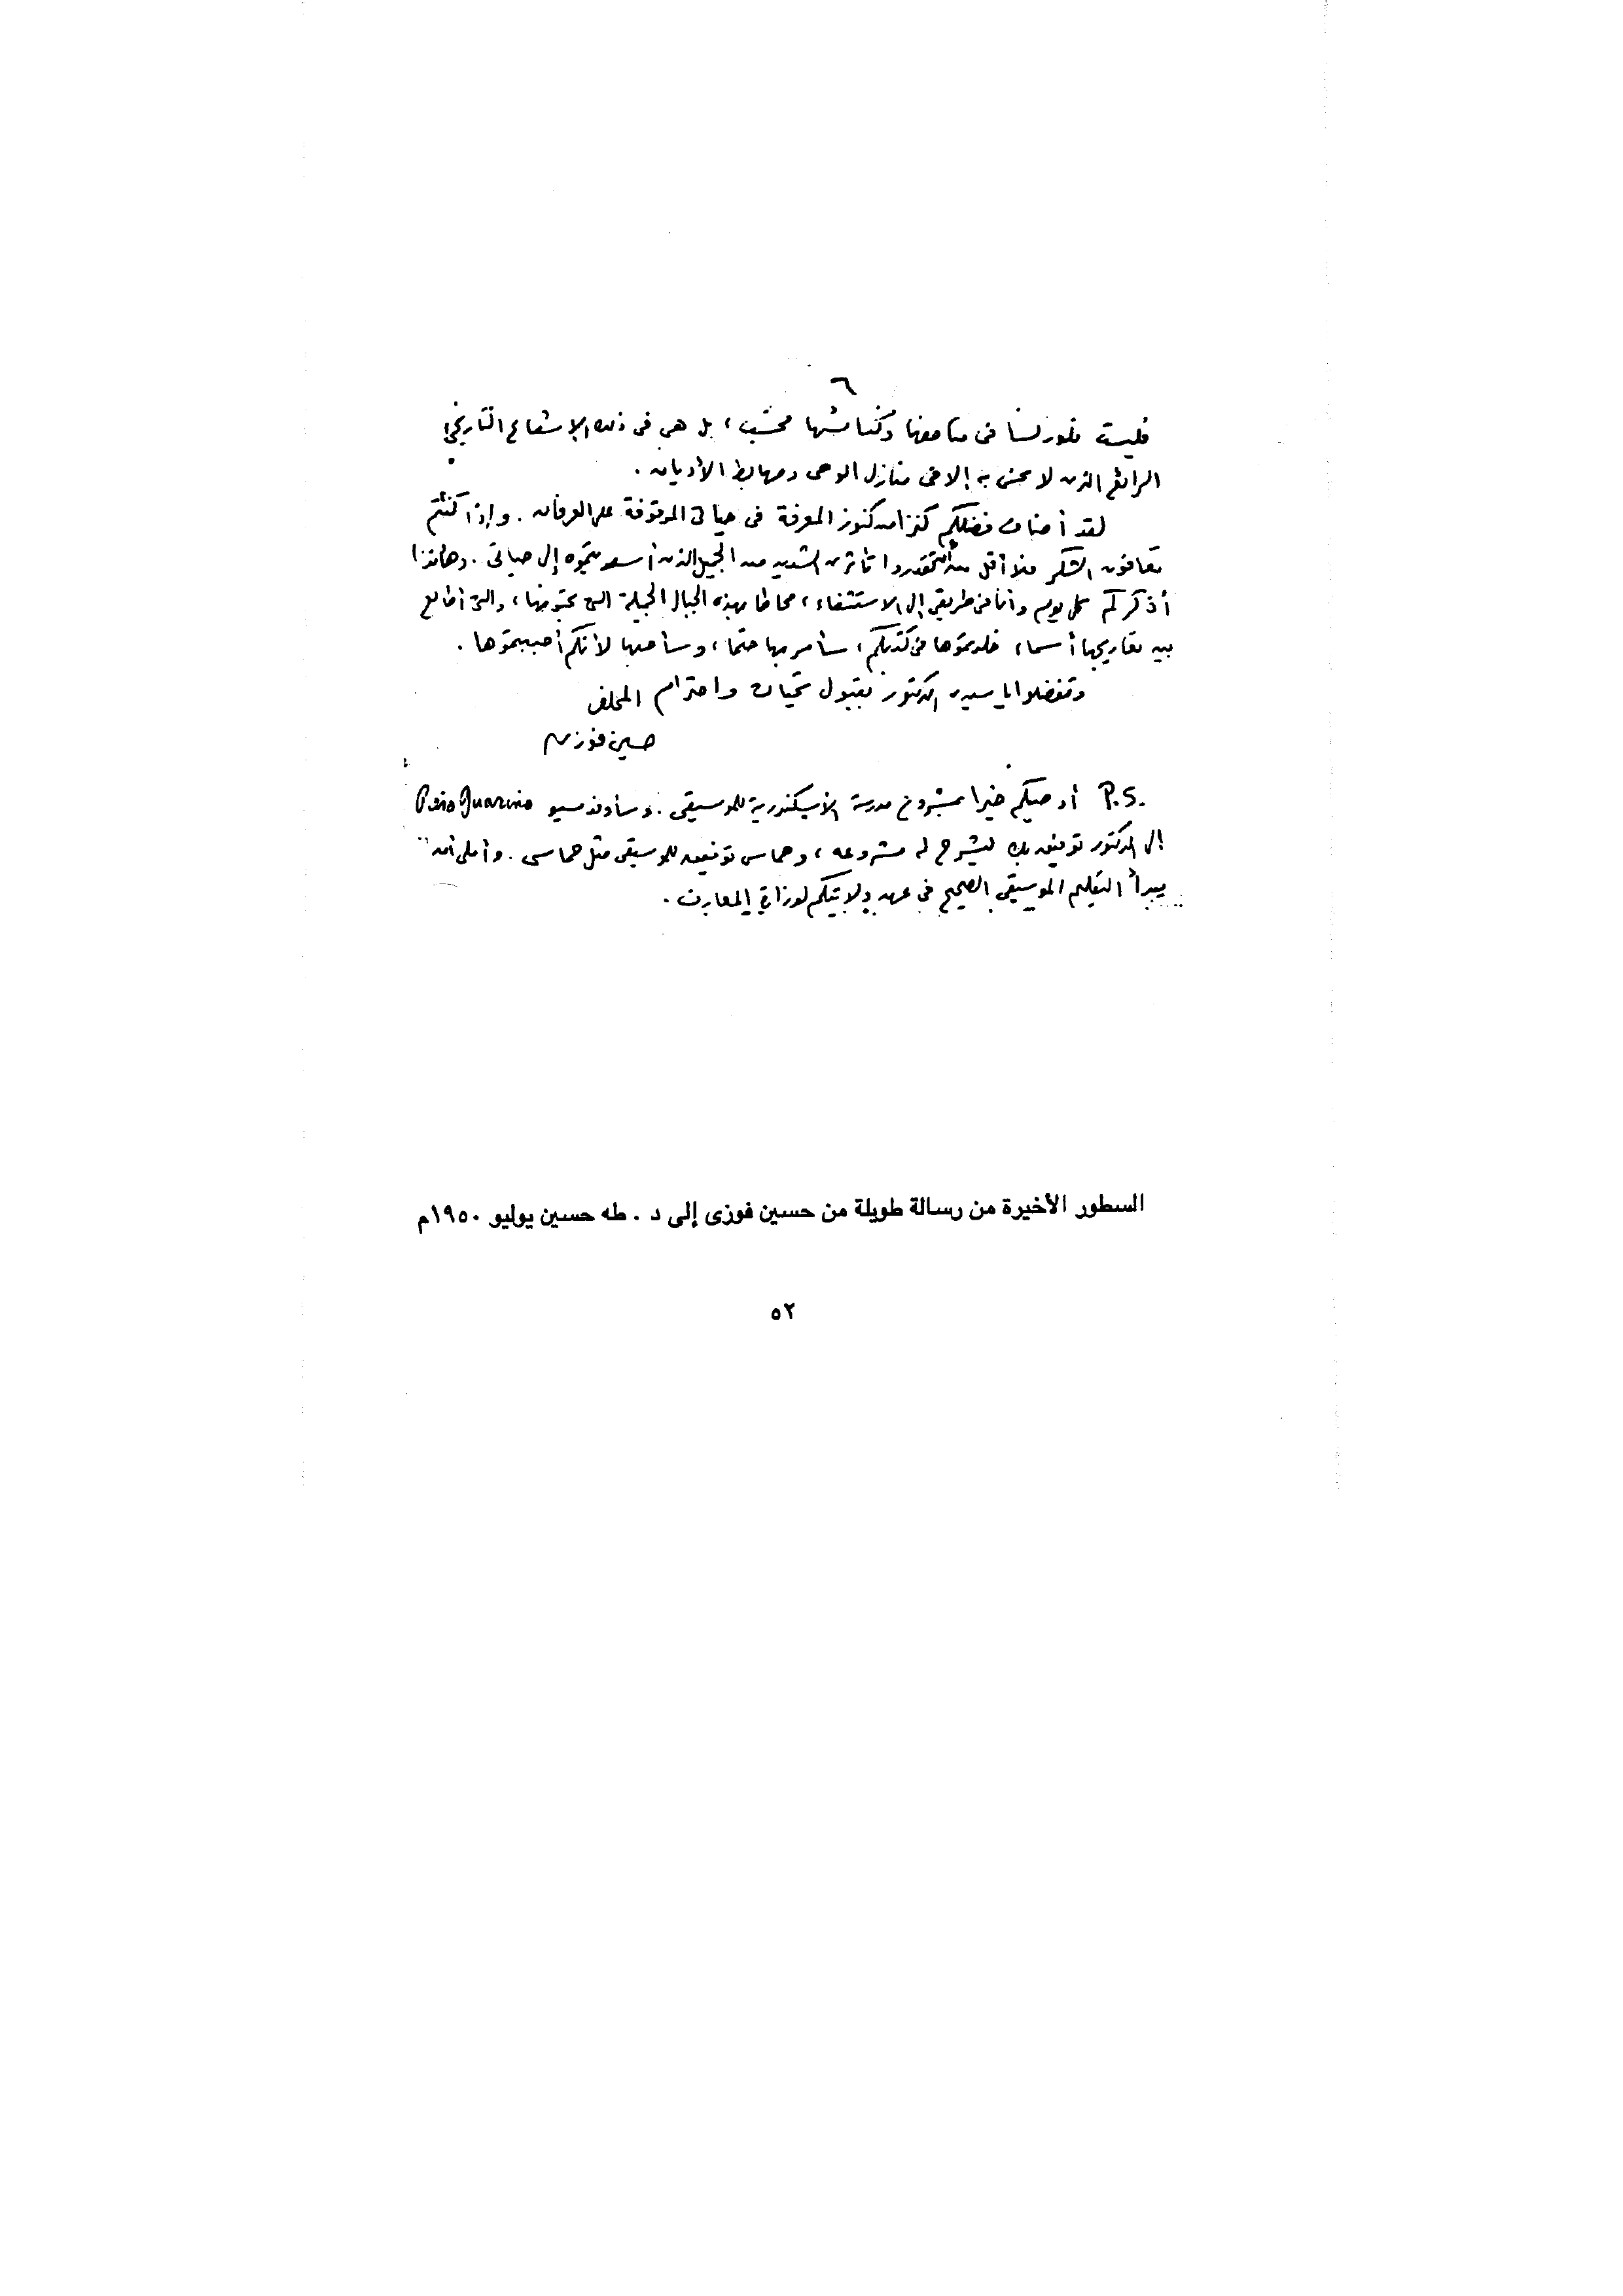 ٦
فليست فلورنسا فى متاحفها وكنائسها فحسب، بل هى فى ذلك الإشعاع التاريخى
الرائع الذى لا نحس به إلا فى منازل الوحى ومهابط الأديان.
لقد أضاف فضلكم كنزا من كنوز المعرفة فى حياتى الموقوفة على العرفان. وإذا كنتم
تعافون الشكر فلا أقل من أن تقدروا تأثرى الشديد من الجميل الذى أسديتموه إلى حياتى. وهأنذا
أذكركم كل يوم وأنا فى طريقى إلى الاستشفاء، محاطا بهذه الجبال الجميلة التى تحبونها، والتى أطالع
بين تعاريجها أسماء خلدتموها فى كتبكم، سأمر بها حتما، وسأحبها لأنكم أحببتموها.
وتفضلوا يا سيدى الدكتور بقبول تحيات واحترام المخلص
حسين فوزى
P.S. أوصيكم خيرا بمشروع مدرسة الإسكندرية للموسيقى. وسأوفد مسيو Guarino
إلى الدكتور توفيق بك ليشرح له مشروعه، وحماس توفيق للموسيقى مثل حماسى. وأملى أن
يبدأ التعليم الموسيقى الصحيح فى عهد ولايتكم لوزارة المعارف.
السطور الأخيرة من رسالة طويلة من حسين فوزى إلى د . طه حسين يوليو ١٩٥٠م
٥٢